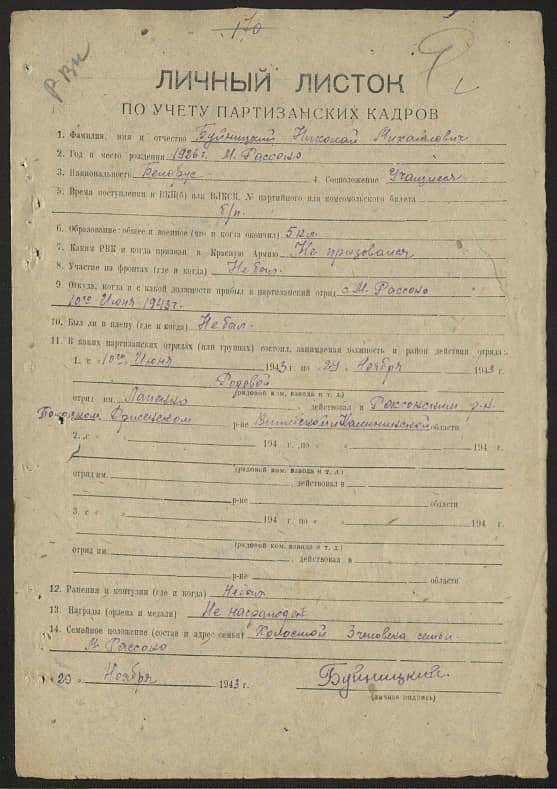 170
РВК
ЛИЧНЫЙ ЛИСТОК
ПО УЧЕТУ ПАРТИЗАНСКИХ КАДРОВ
1. Фамилия, имя и отчество Буйницкий Николай Михайлович
2. Год и место рождения 1926 г. М. Россоно
3. Национальность Белорус 4. Соцположение Учащиеся
5. Время поступления в ВКП(б) или ВЛКСМ, № партийного или комсомольского билета
б/п.
6. Образование: общее и военное (что и когда окончил) 5 кл.
7. Каким РВК и когда призван в Красную Армию Не призовался
8. Участие на фронтах (где и когда) Не был.
9. Откуда, когда и с какой должности прибыл в партизанский отряд с М. Россоно
10го Июня 1943 г.
10. Был ли в плену (где и когда) Не был.
11. В каких партизанских отрядах (или группах) состоял, занимаемая должность и район действия отряда:
1. с "10го" Июня 1943 г. по "29" Ноября 1943 г.
Родовой
(рядовой ком. взвода и т. д.)
отряд им. действовал в Россонским р-н.
р-не Витебской и Калининской области
2. с " " 194 г. по " " 194 г.
(рядовой ком. взвода и т. д.)
отряд им. , действовал в
р-не области
3. с " " 194 г. по " " 194 г.
(рядовой ком. взвода и т. д.)
отряд им. , действовал в
р-не области
12. Ранения и контузии (где и когда) Не был
13. Награды (ордена и медали) Не награждён
14. Семейное положение (состав и адрес семьи) Холостой 3 человека семьи
М. Россоно
29 Ноября 1943 г. Буйницкий.
(личная подпись)